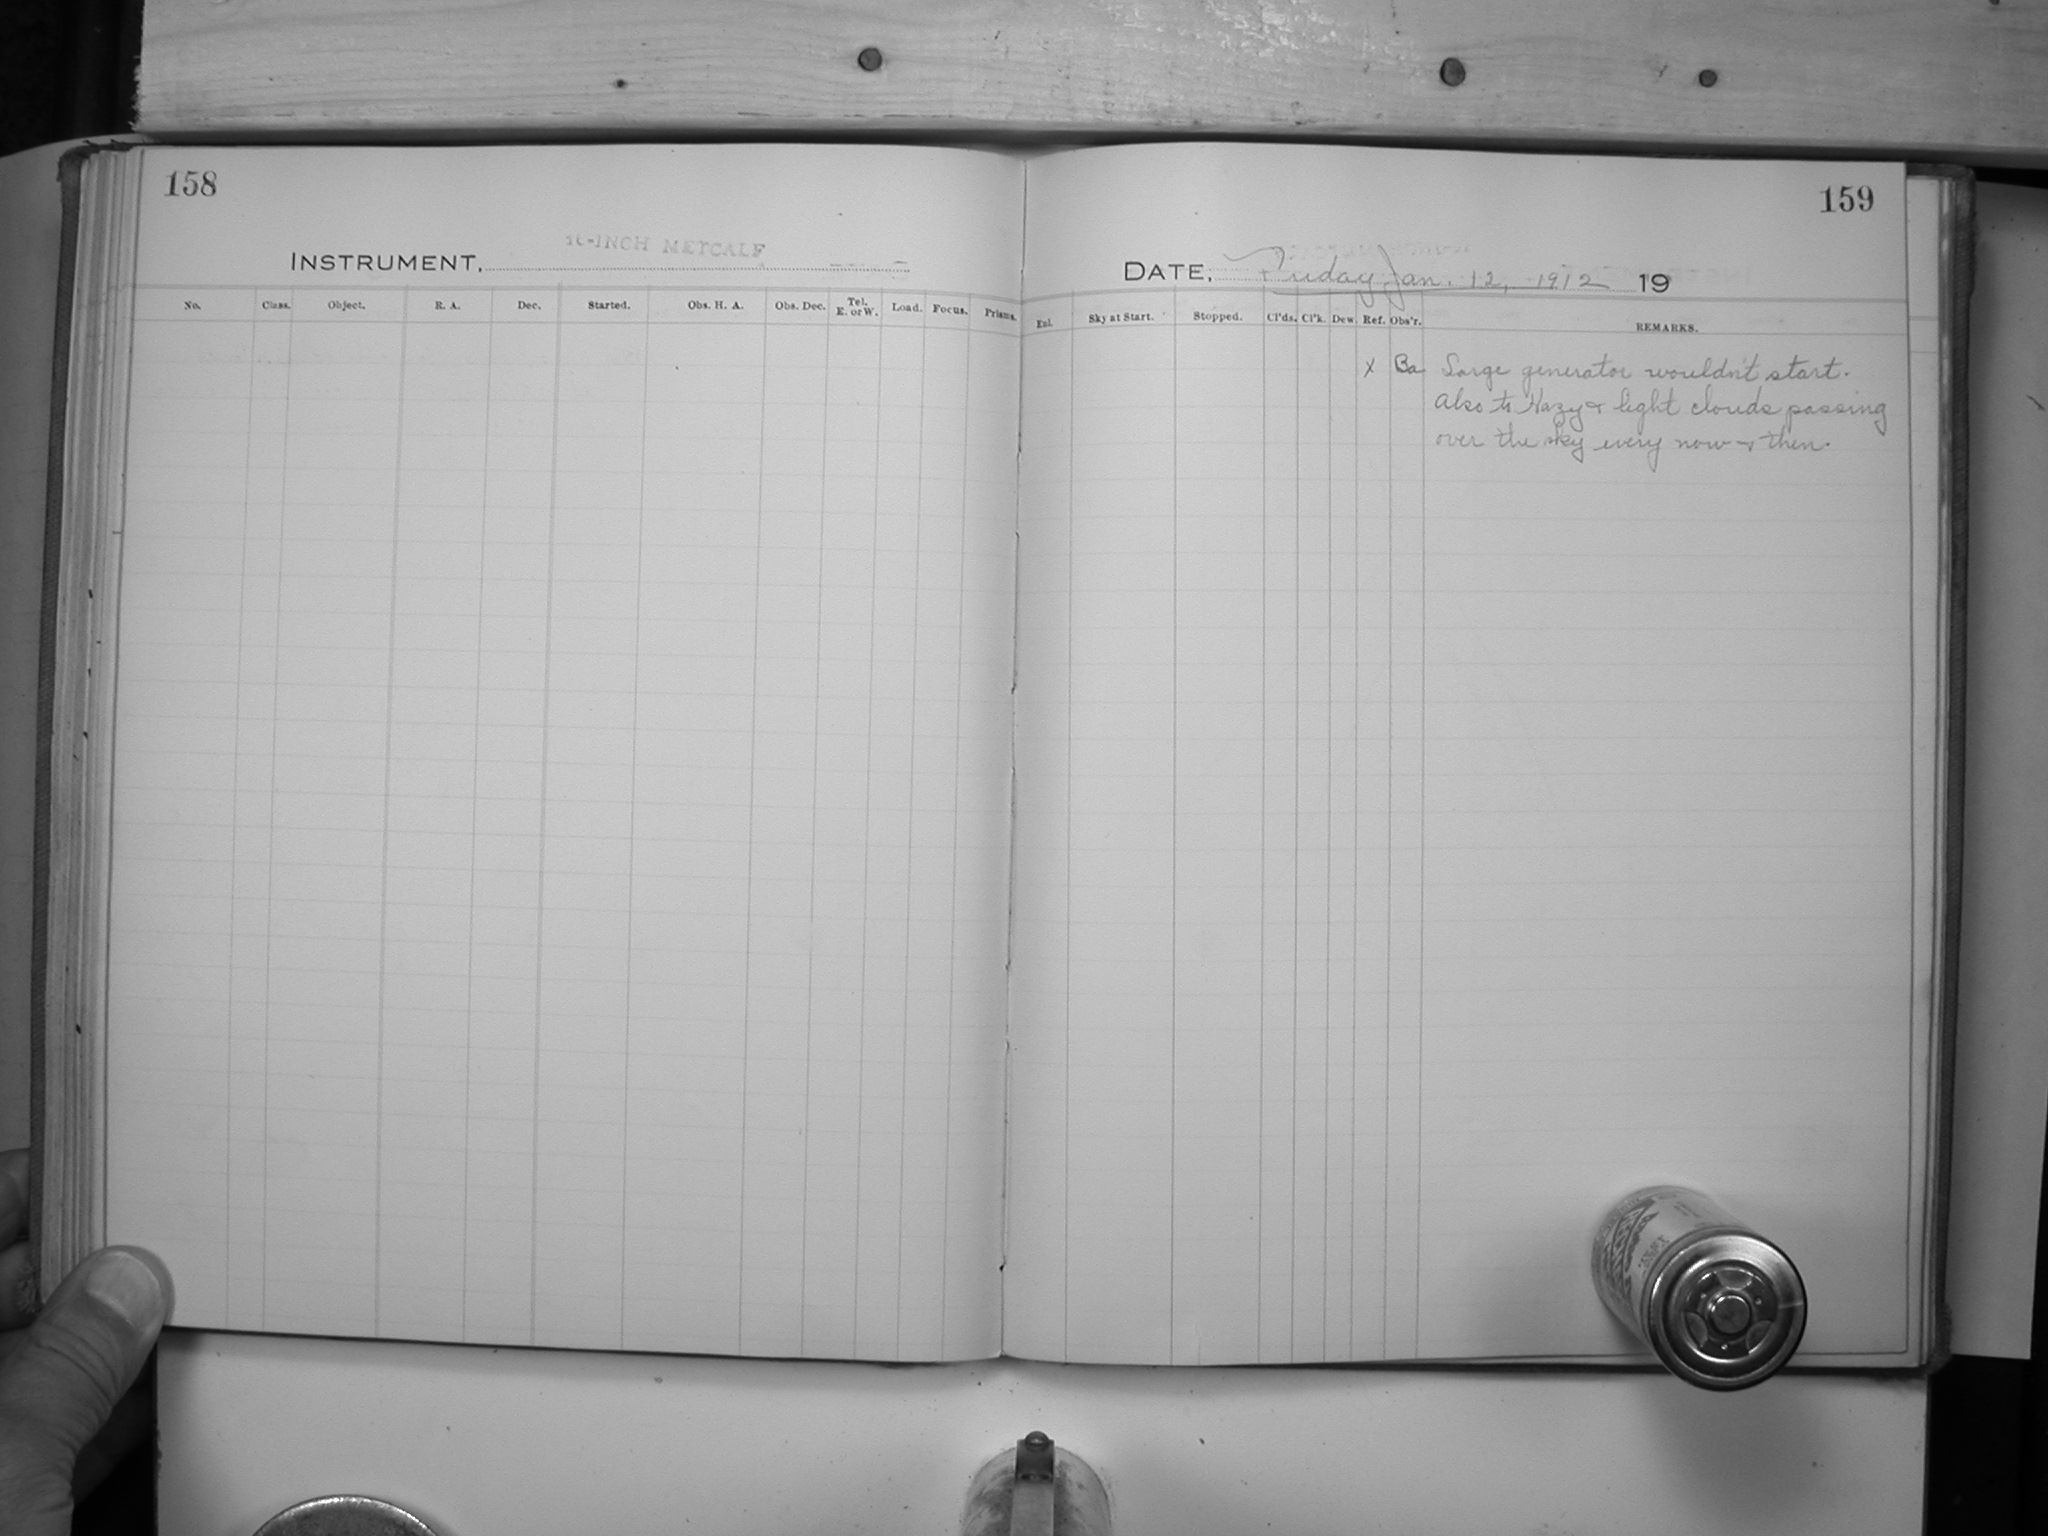 158
INSTRUMENT, 16-INCH METCALF
No. Class. Object. R. A. Dec. Started. Obs. H. A. Obs. Dec. Tel. E. or W. Load. Focus. Prisms.
159
DATE, Friday Jan. 12, 1912 19
Enl. Sky at Start. Stopped. Cl'ds. Cl'k. Dew. Ref. Obs'r. REMARKS.
x Ba Large generator wouldn't start.
Also to Hazy & light clouds passing
over the sky every now & then.